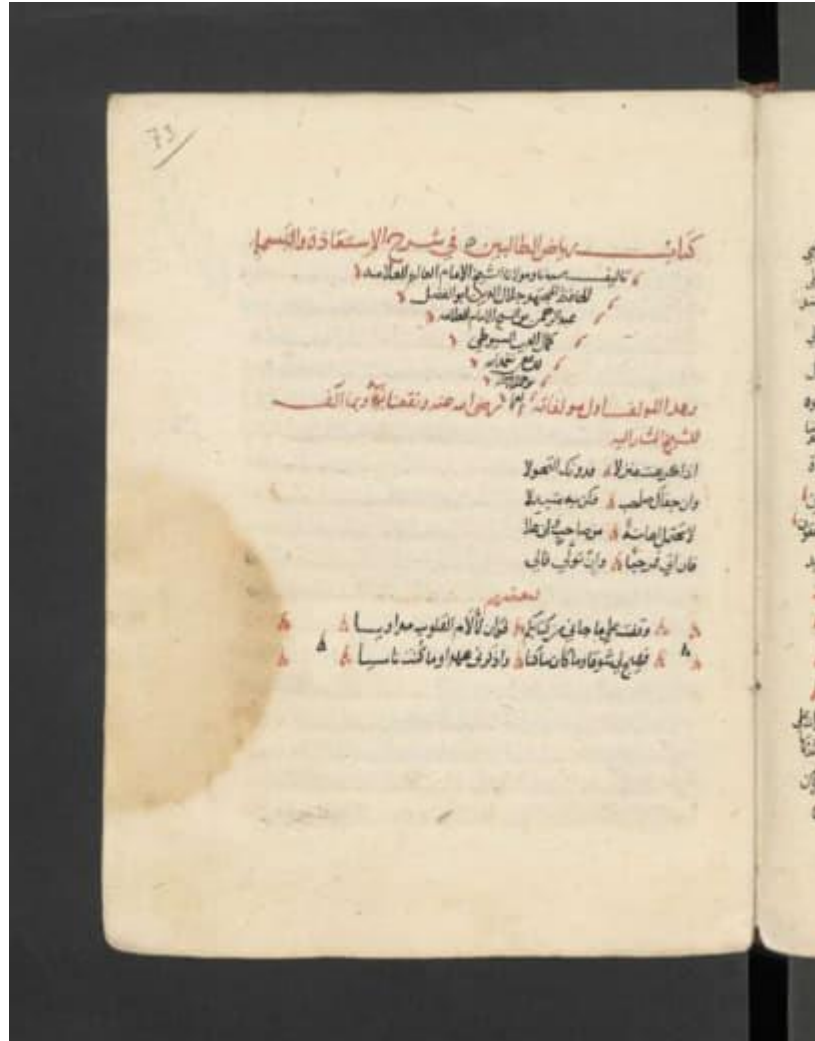 73
كتاب رياض الطالبين في شرح الاستعاذة والبسملة
تاليف سيدنا ومولانا الشيخ الامام العالم العلامة
الحافظ المجتهد جلال الدين ابو الفضل
عبد الرحمن بن الشيخ الامام العلامة
كمال الدين السيوطي
وهذا المولف اول مولفاته رضي الله عنه ونفعنا به وبما الف
للشيخ المشار اليه
اذا كرهت منزلا فدونك التحولا
وان جفاك صاحب فكن به مستبدلا
لا تحتمل اهانة من صاحب وان علا
فمن اتى فمرحبا وان تولى فالى
لغيره
وقفت على ما جاني من كتابكم فكان لآلام القلوب مداويا
فهيج لي شوقا وما كان ساكنا واذكرني عهدا وما كنت ناسيا